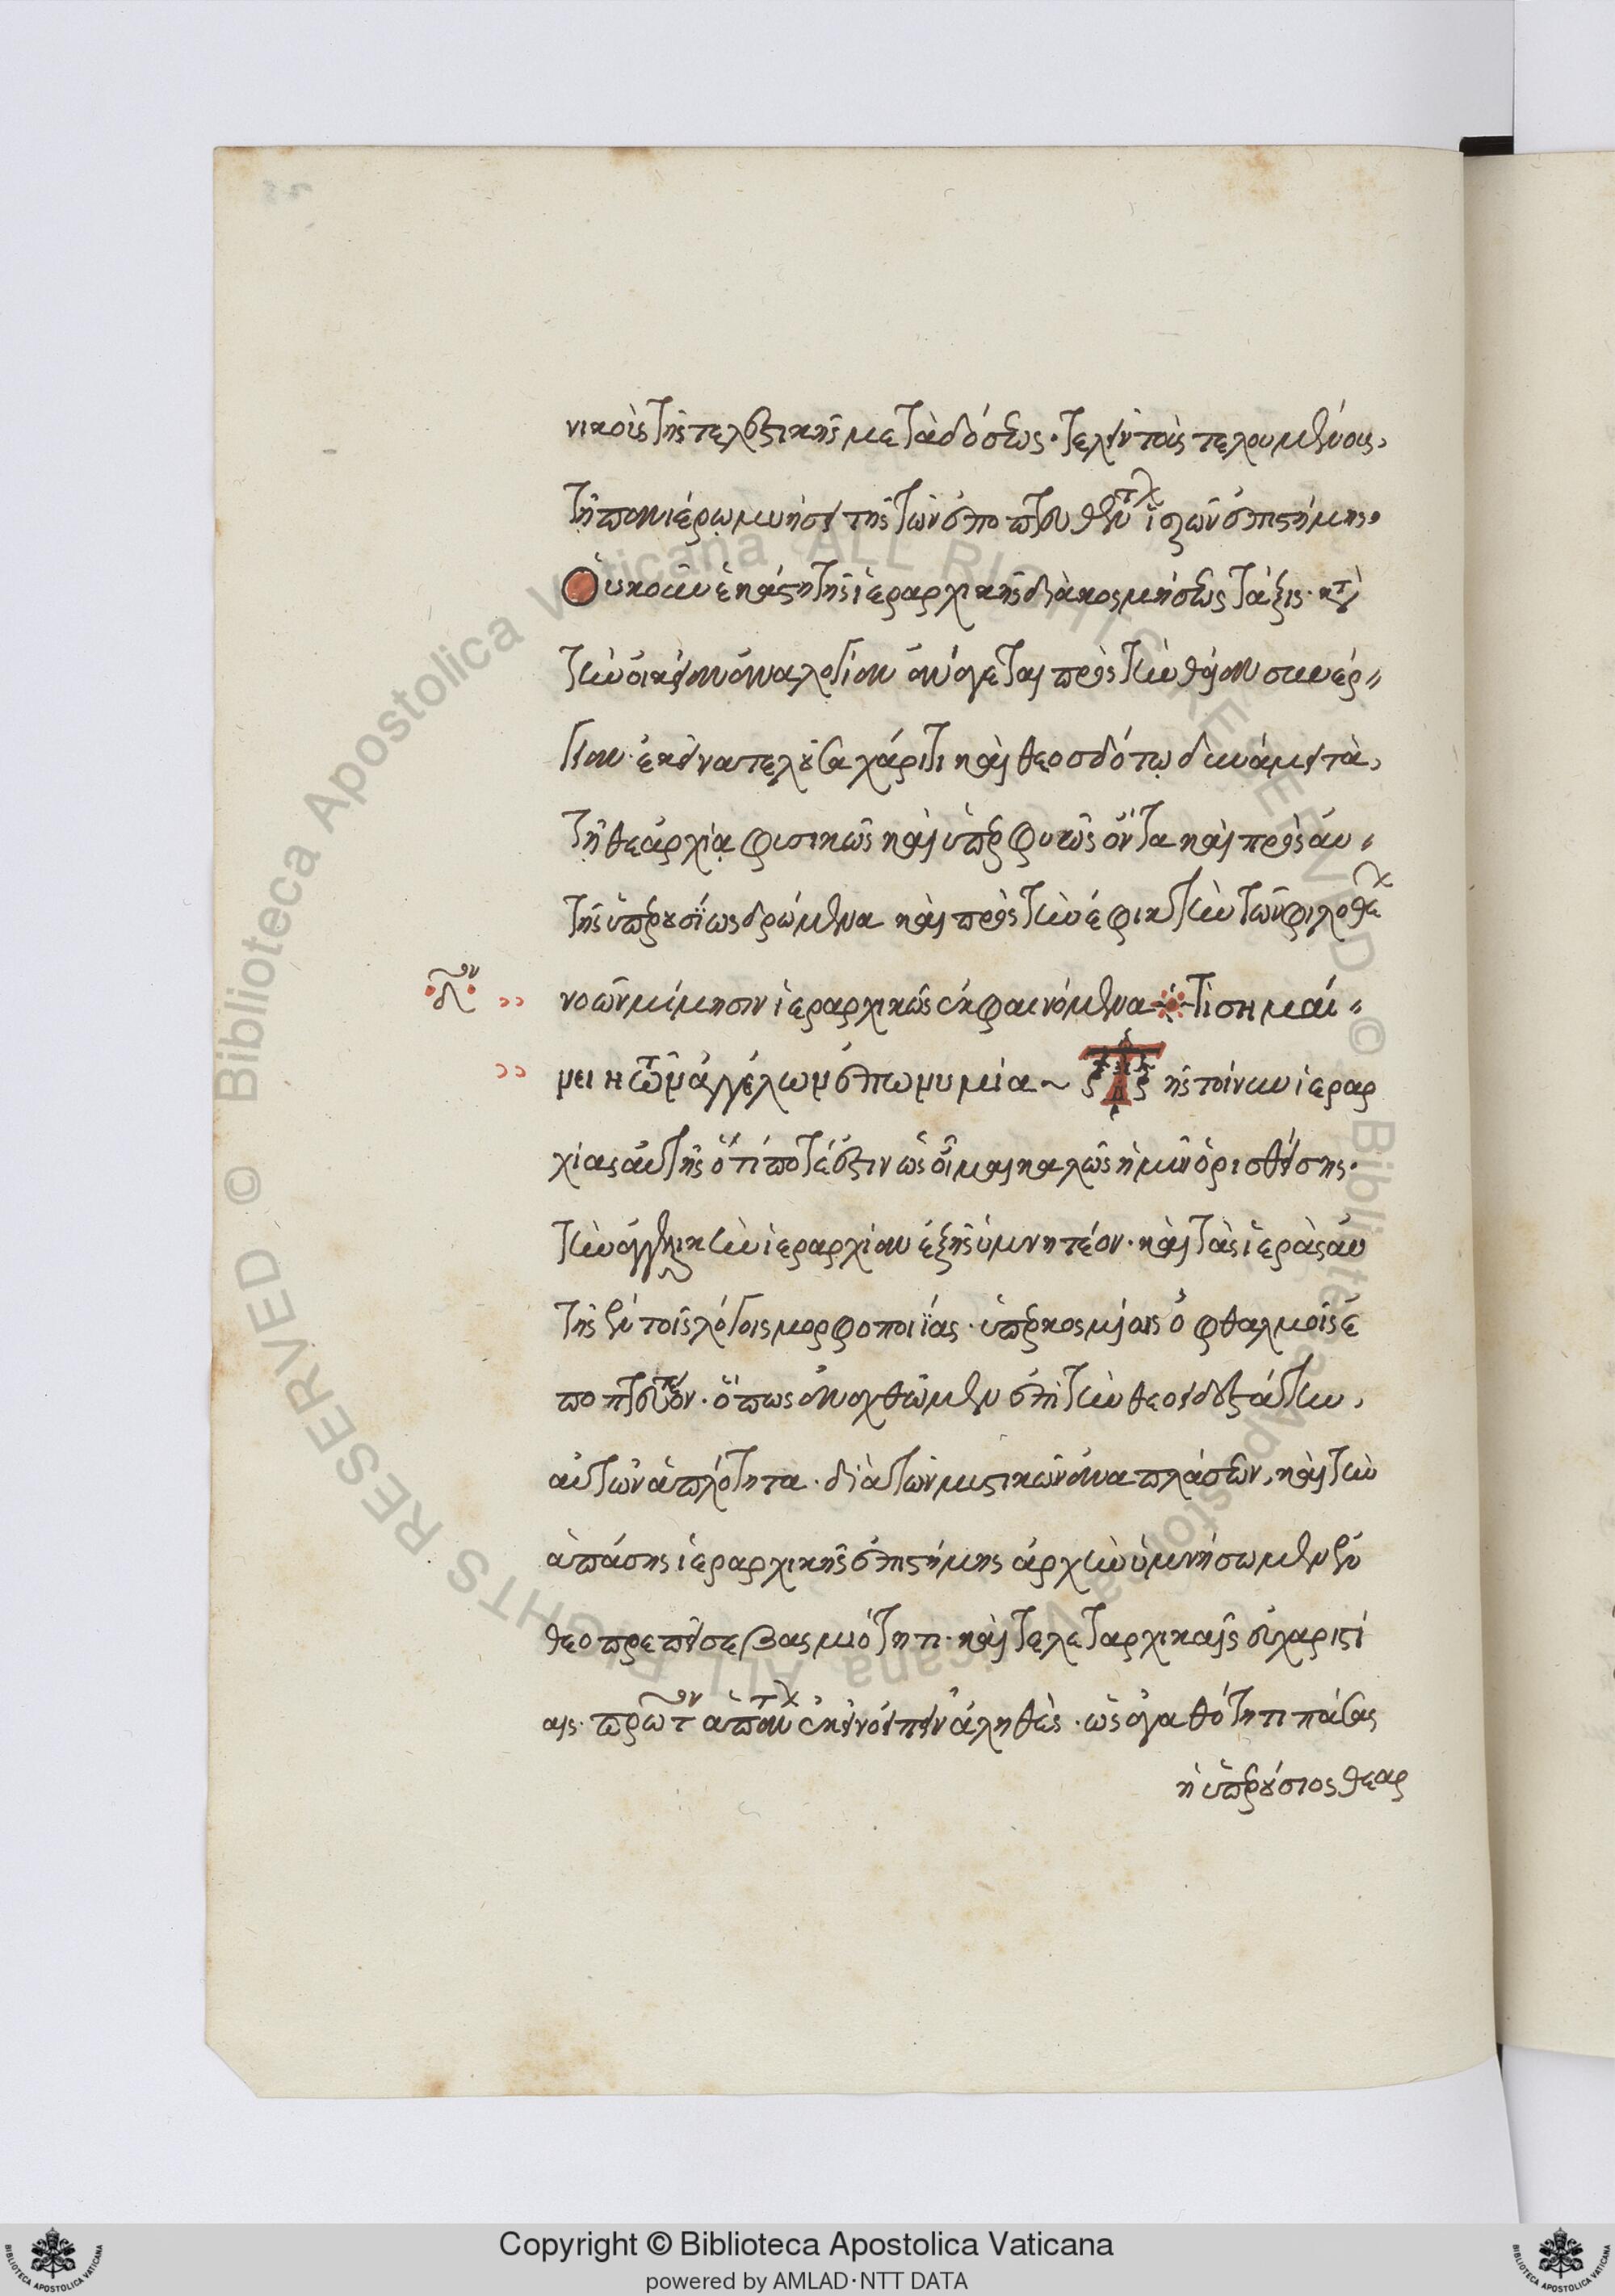 νικοῖς τῆς τελεστικῆς μεταδόσεως· τελεῖν τοὺς τελουμένους,
τῇ πανιέρῳ μυήσει τῆς τῶν ἐποπτευθέντων ἱερῶν ἐπιστήμης,
Οὐκοῦν ἑκάστη τῆς ἱεραρχικῆς διακοσμήσεως τάξις· κατὰ
τὴν οἰκείαν ἀναλογίαν ἀνάγεται πρὸς τὴν θείαν συνερ〃
γίαν· ἐκεῖνα τελοῦσα χάριτι καὶ θεοσδότῳ δυνάμει τὰ,
τῇ θεαρχίᾳ φυσικῶς καὶ ὑπερφυῶς ὄντα καὶ πρὸς αὐ〃
τῆς ὑπερουσίως δρώμενα καὶ πρὸς τὴν ἐφικτὴν τῶν φιλοθέων
νοῶν μίμησιν ἱεραρχικῶς ἐκφαινόμενα Τί σημαί〃
νει ἡ τῶν ἀγγέλων ἐπωνυμία ~ Τῆς τοίνυν ἱεραρ
χίας αὐτῆς ὅ τί ποτέ ἐστιν ὡς οἶμαι καλῶς ἡμῖν ὁρισθείσης·
τὴν ἀγγελικὴν ἱεραρχίαν ἑξῆς ὑμνητέον· καὶ τὰς ἱερὰς αὐ
τῆς ἐν τοῖς λόγοις μορφοποιΐας· ὑπερκοσμίοις ὀφθαλμοῖς ἐ
ποπτευτέον· ὅπως ἀναχθῶμεν ἐπὶ τὴν θεοειδεστάτην,
αὐτῶν ἁπλότητα· διὰ τῶν μυστικῶν ἀναπλάσεων, καὶ τὴν
ἁπάσης ἱεραρχικῆς ἐπιστήμης ἀρχὴν ὑμνήσωμεν ἐν
θεοπρεπεῖ σεβασμιότητι· καὶ τελεταρχικαῖς εὐχαριστί
αις· πρῶτον ἁπάντων ἐκεῖνο εἰπεῖν ἀληθὲς· ὡς ἀγαθότητι πάσας
ἡ ὑπερούσιος θεαρ